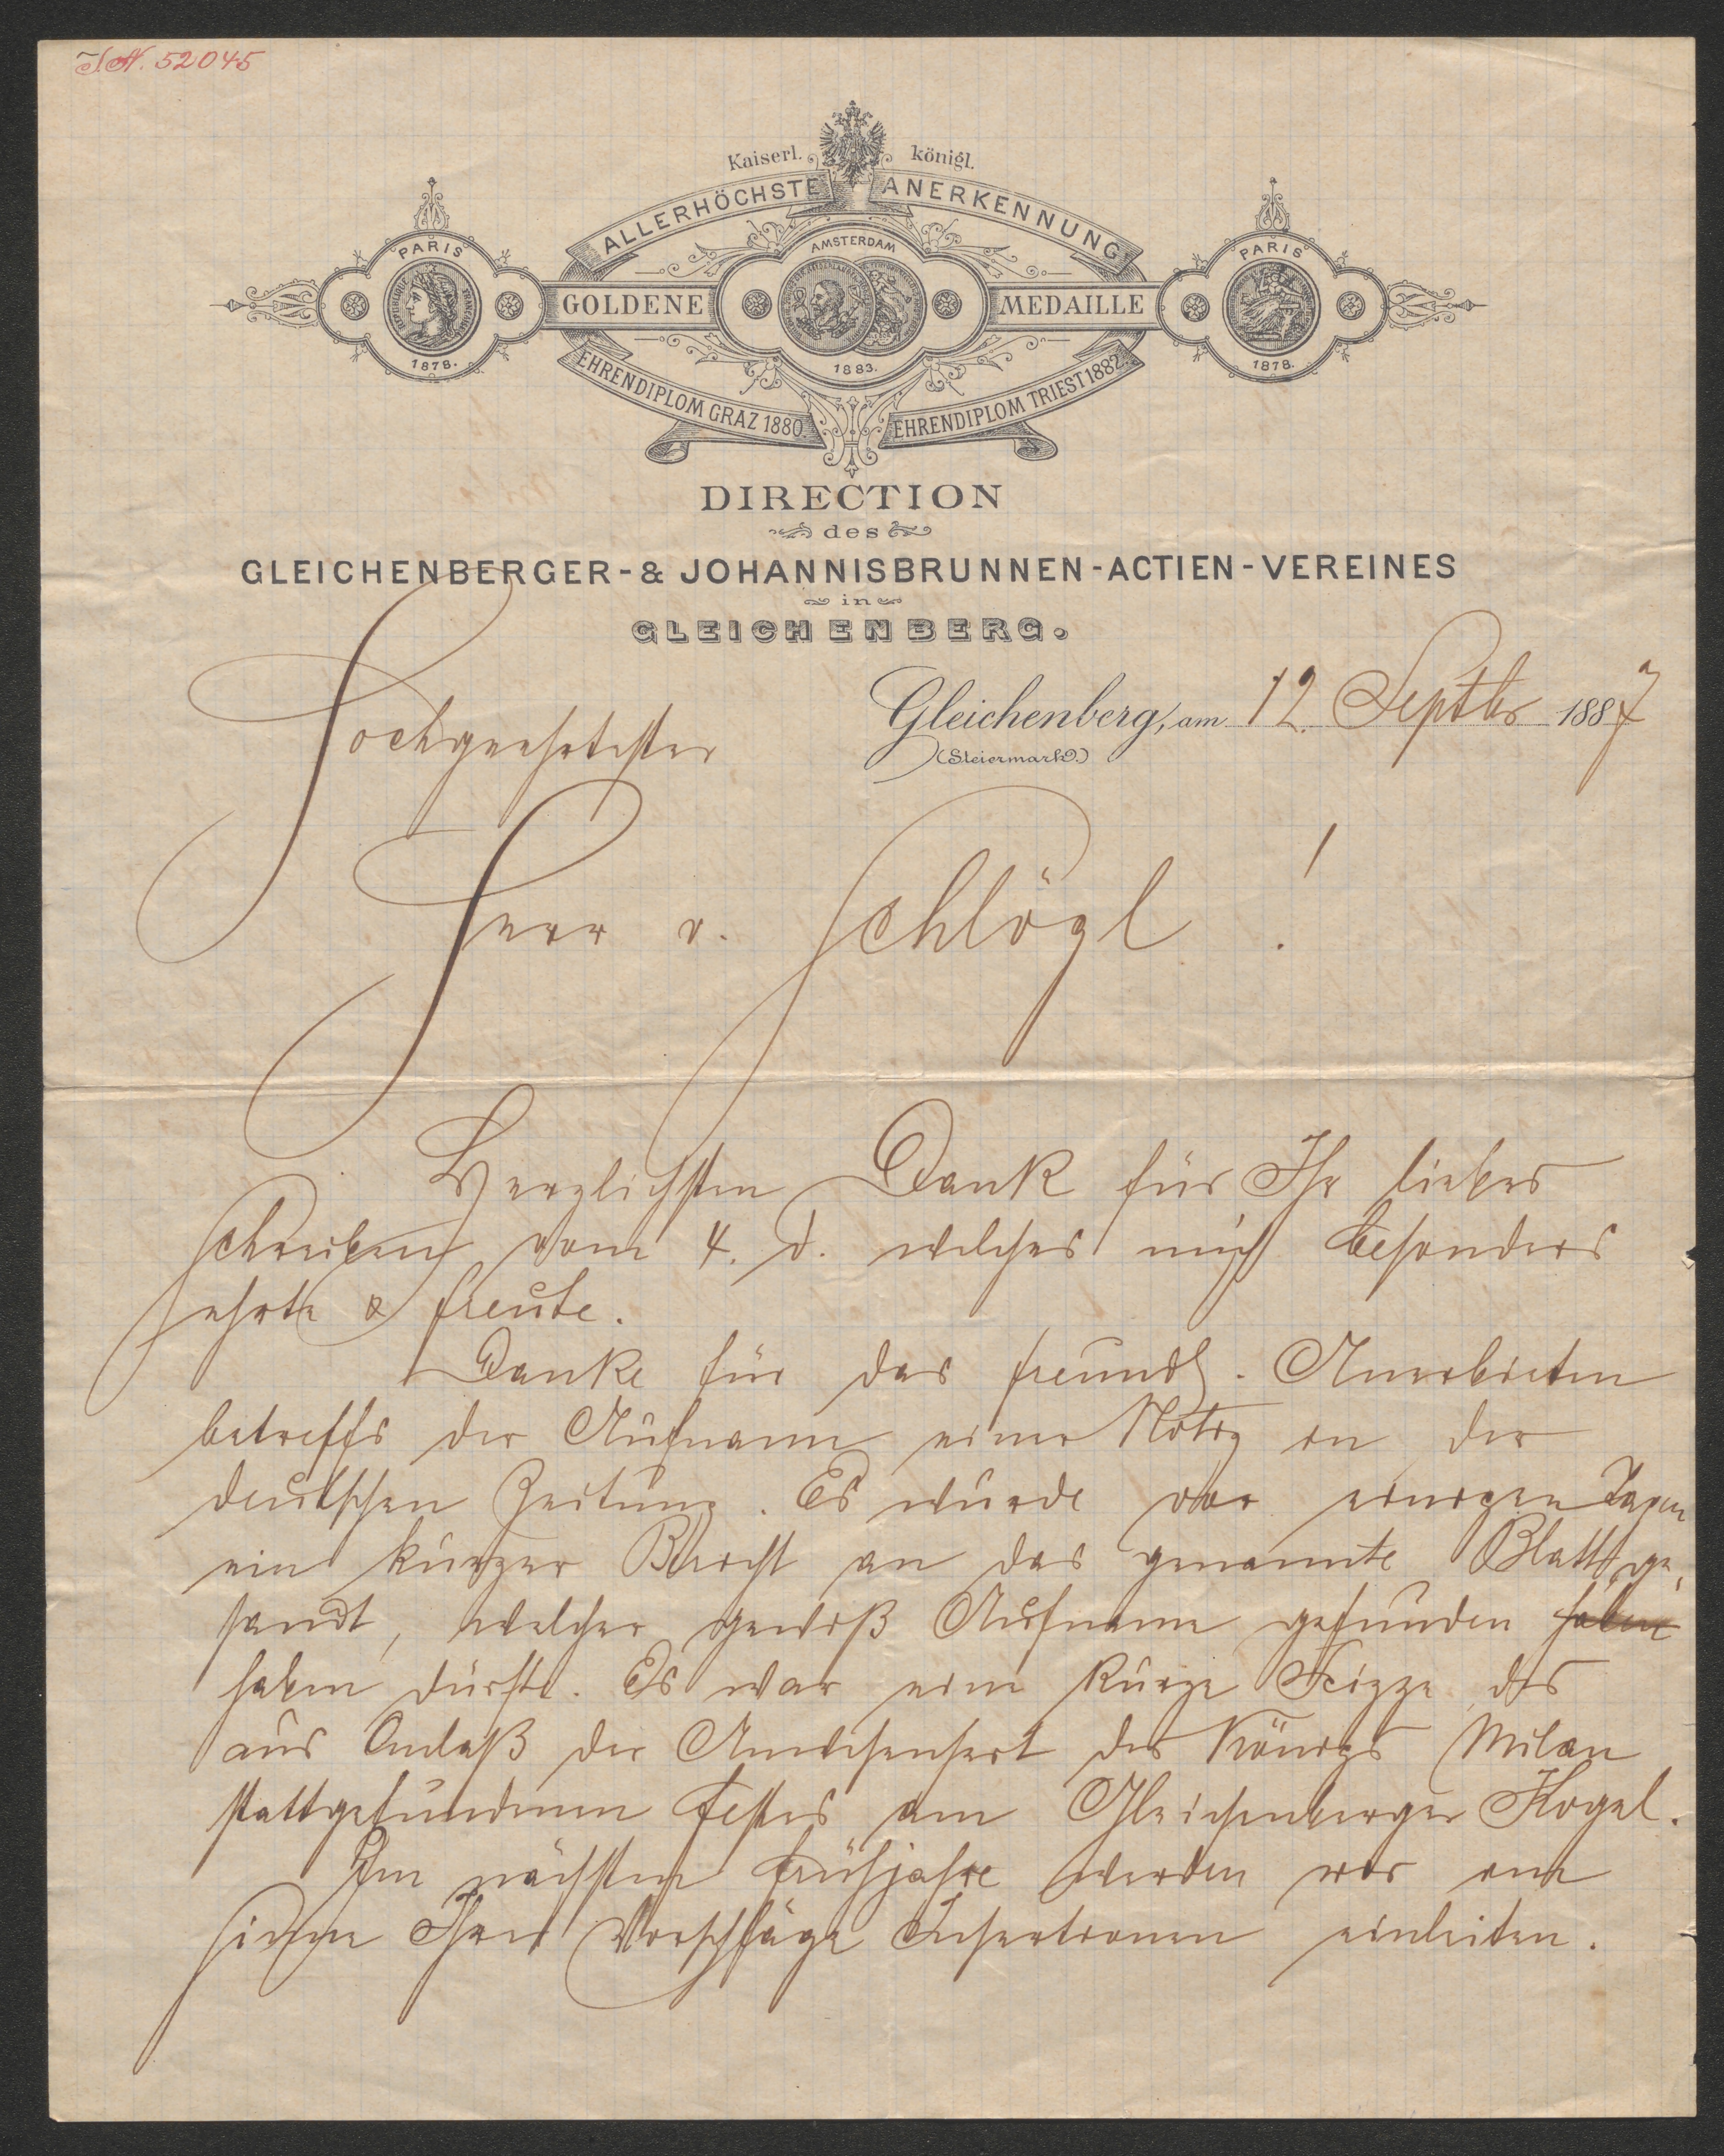 I.N. 52045
Kaiserl. königl.
ALLERHÖCHSTE ANERKENNUNG
PARIS AMSTERDAM PARIS
GOLDENE MEDAILLE
1878. 1883. 1878.
EHRENDIPLOM GRAZ 1880 EHRENDIPLOM TRIEST 1882.
DIRECTION
des
GLEICHENBERGER- & JOHANNISBRUNNEN-ACTIEN-VEREINES
in
GLEICHENBERG.
Gleichenberg, am 12. Septbr 1887
(Steiermark.)
Hochgeehrtester
Herr v. Schlögl !
Herzlichsten Dank für Ihr liebes
Schreiben vom 4. d. welches mich besonders
ehrte & freute.
Danke für das freundl. Anerbieten
betreffs der Aufname einer Notiz in der
deutschen Zeitung. Es wurde vor einigen Tagen
ein kurzer Bericht an das genannte Blatt ge-
sandt, welcher gewiß Aufname gefunden haben
haben dürfte. Es war eine kurze Skizze des
aus Anlaß der Anwesenheit des Königs Milan
stattgefundenen Festes am Gleichenberger Kogel.
Im nächsten Frühjahre werden wir im
Sinne Ihrer Vorschläge Insertionen einleiten.